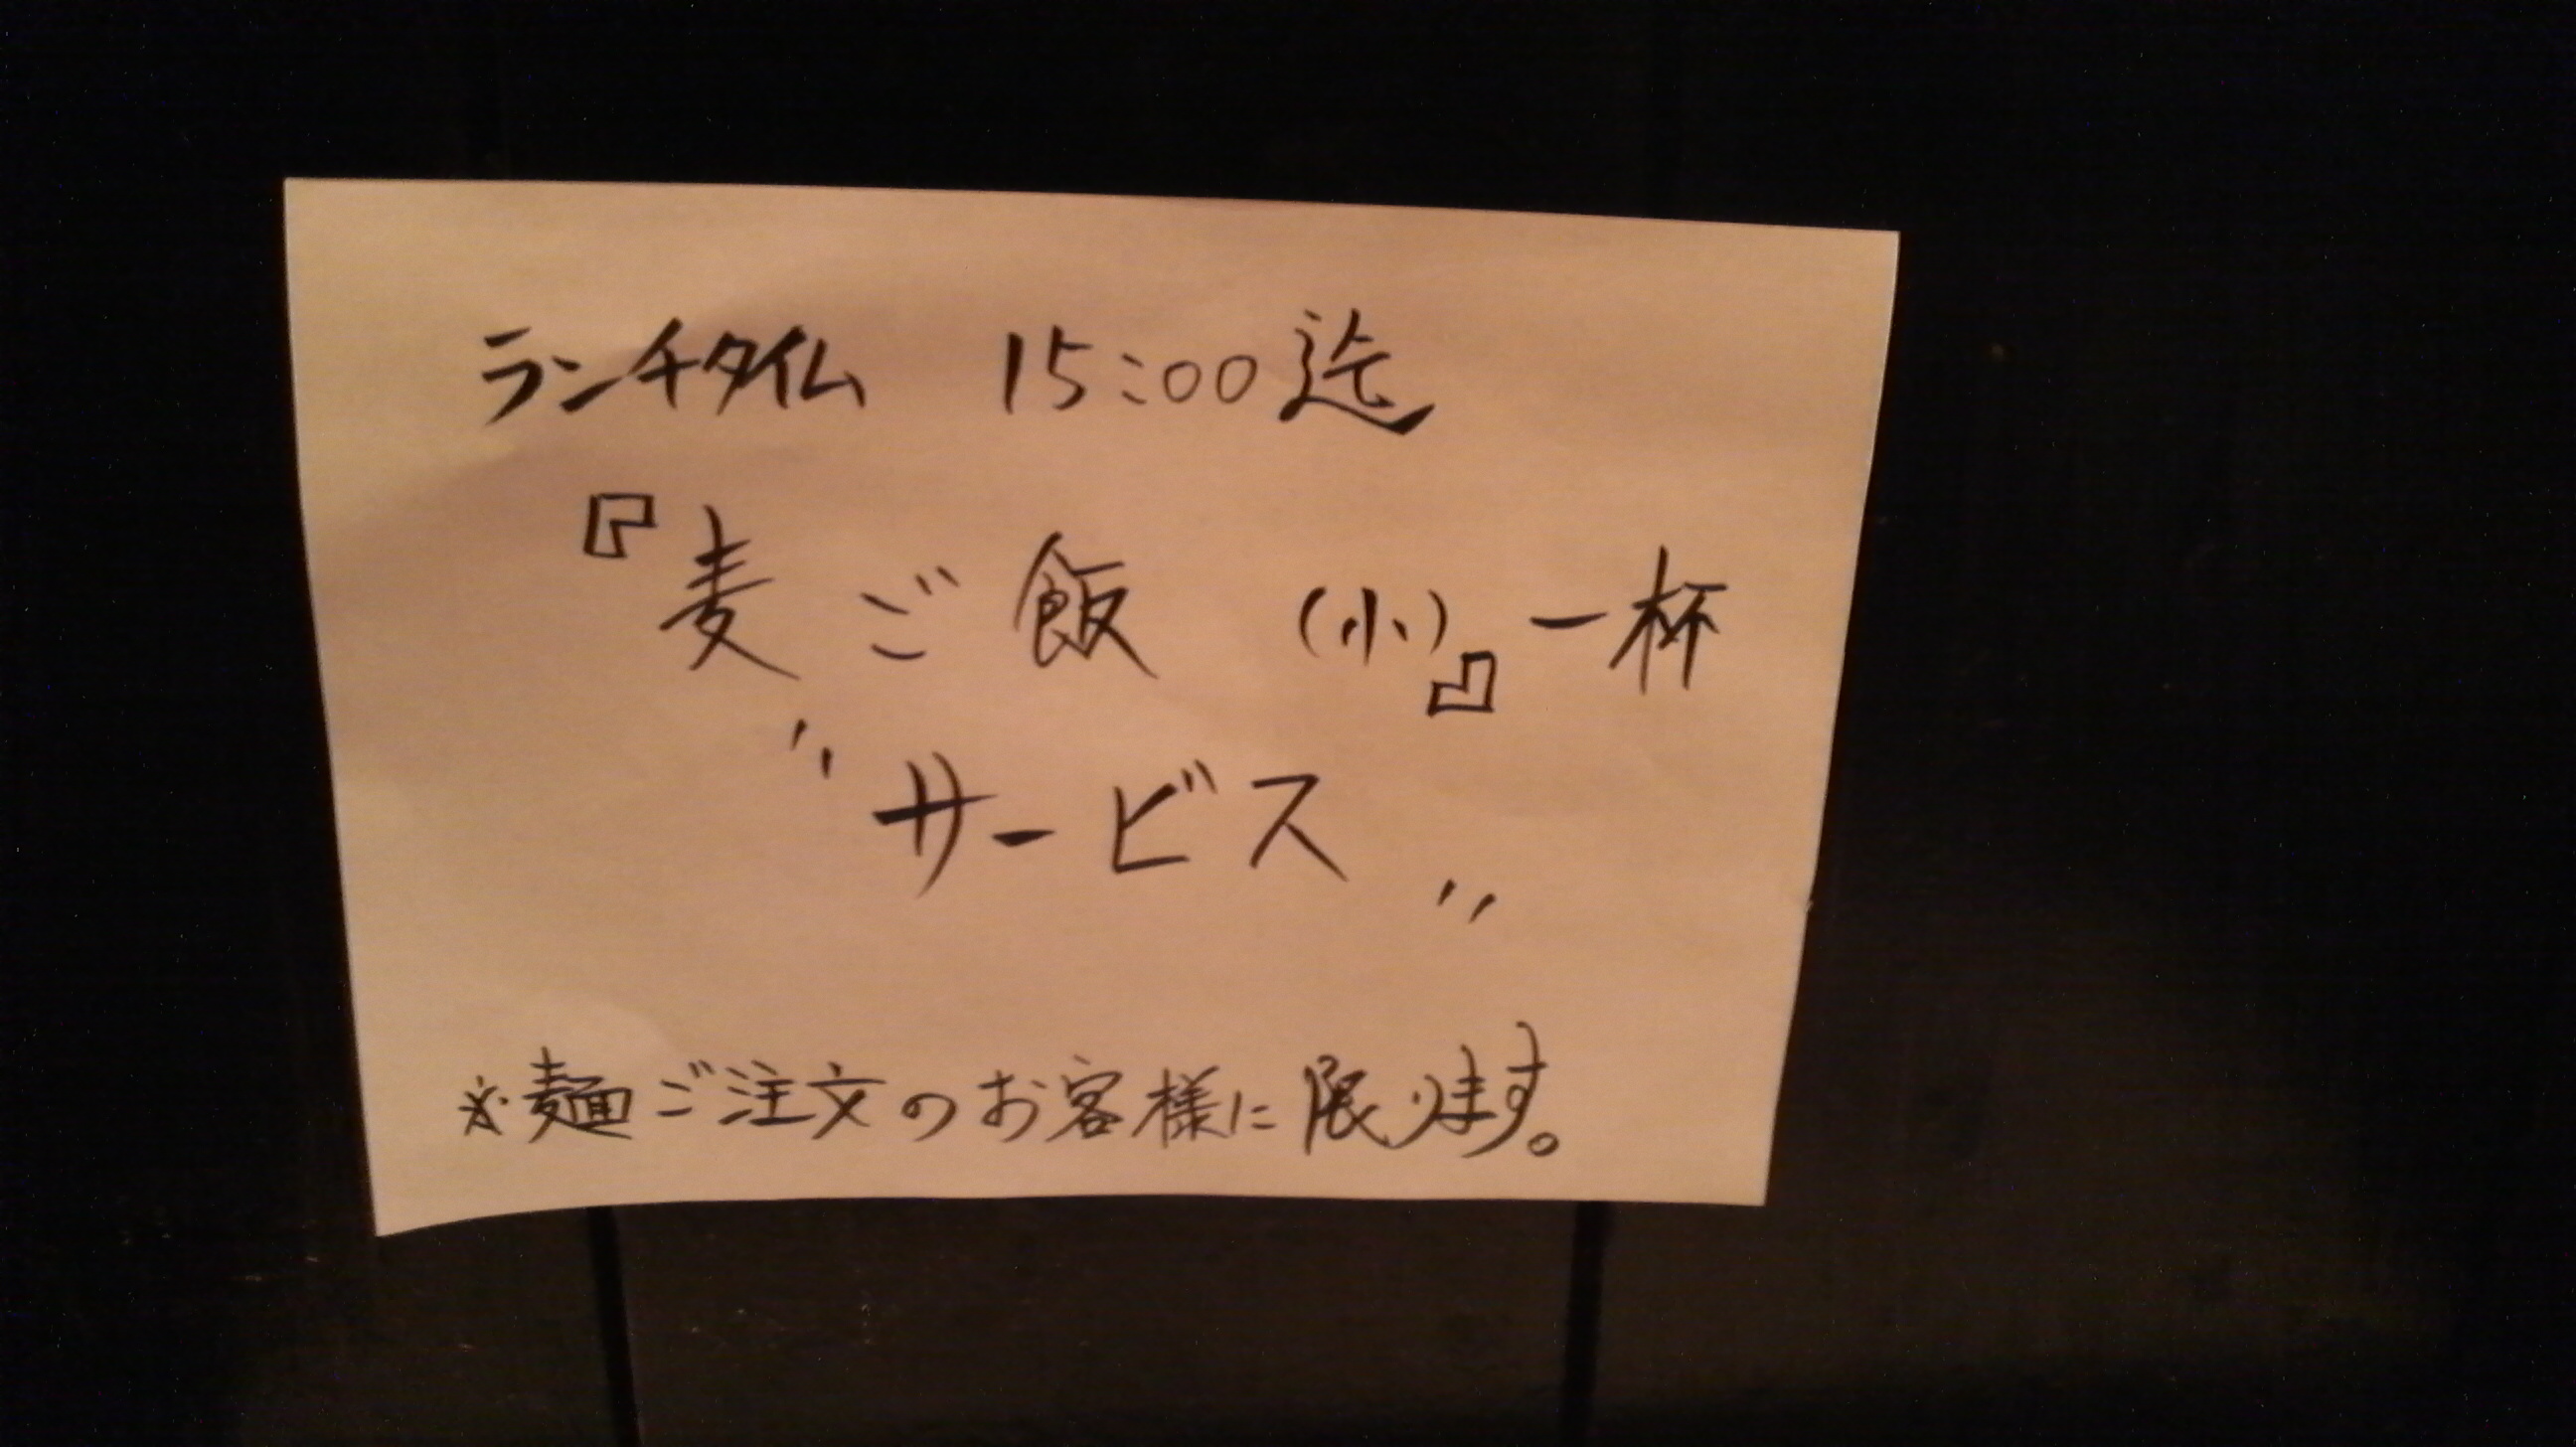 ランチタイム 15:00迄
『麦ご飯 (小)』一杯
〝サービス〟
※麺ご注文のお客様に限ります。